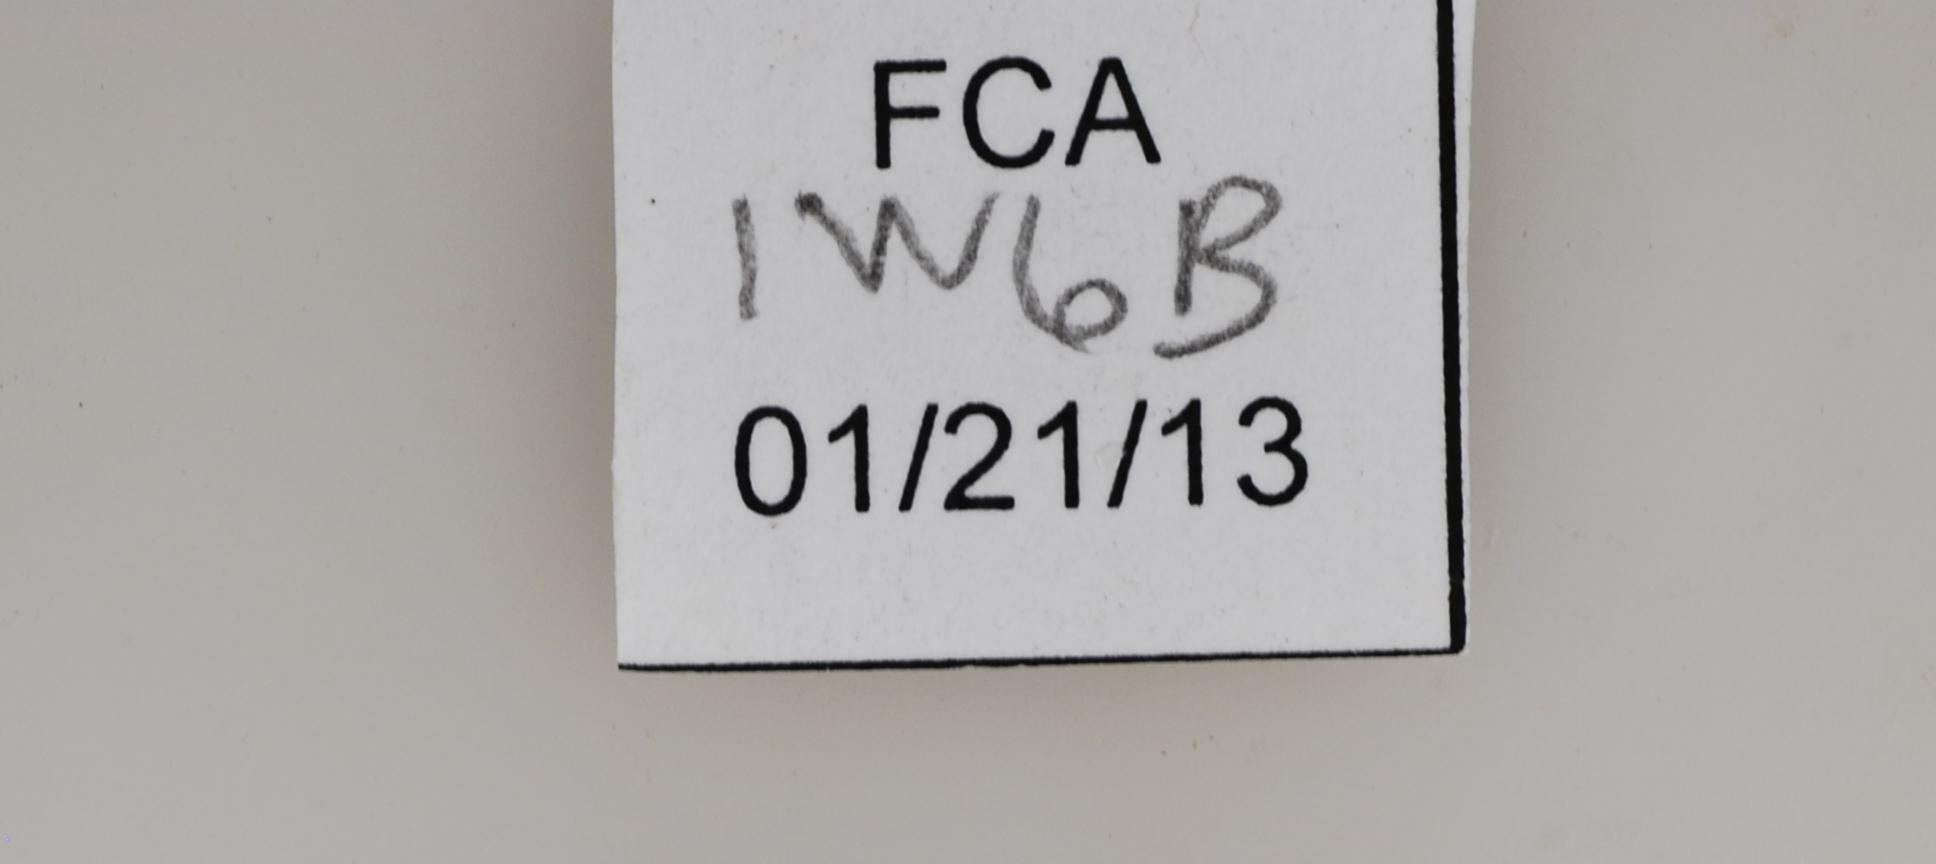 FCA
1W6B
01/21/13